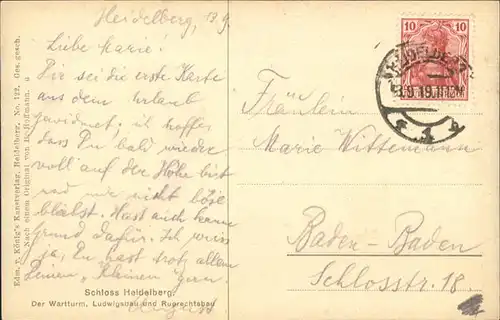 Heidelberg, 13.9.
Liebe Marie!
Dir sei die erste Karte
aus dem Urlaub
gewidmet; ich hoffe,
dass Du bald wieder
voll auf der Höhe bist
und mir nicht böse
bleibst. Hast auch kein
Grund dafür. Ich weiss
ja, Du hast trotz allem
Deinen "kleinen" gern.
August
Schloss Heidelberg.
Der Wartturm, Ludwigsbau und Ruprechtsbau
Edm. v. König's Kunstverlag, Heidelberg, No. 172. Ges. gesch.
Nach einem Original von H. Hoffmann.
10 10
HEIDELBERG
13.9.19.
Fräulein
Marie Wittemann
Baden-Baden
Schlosstr. 18.